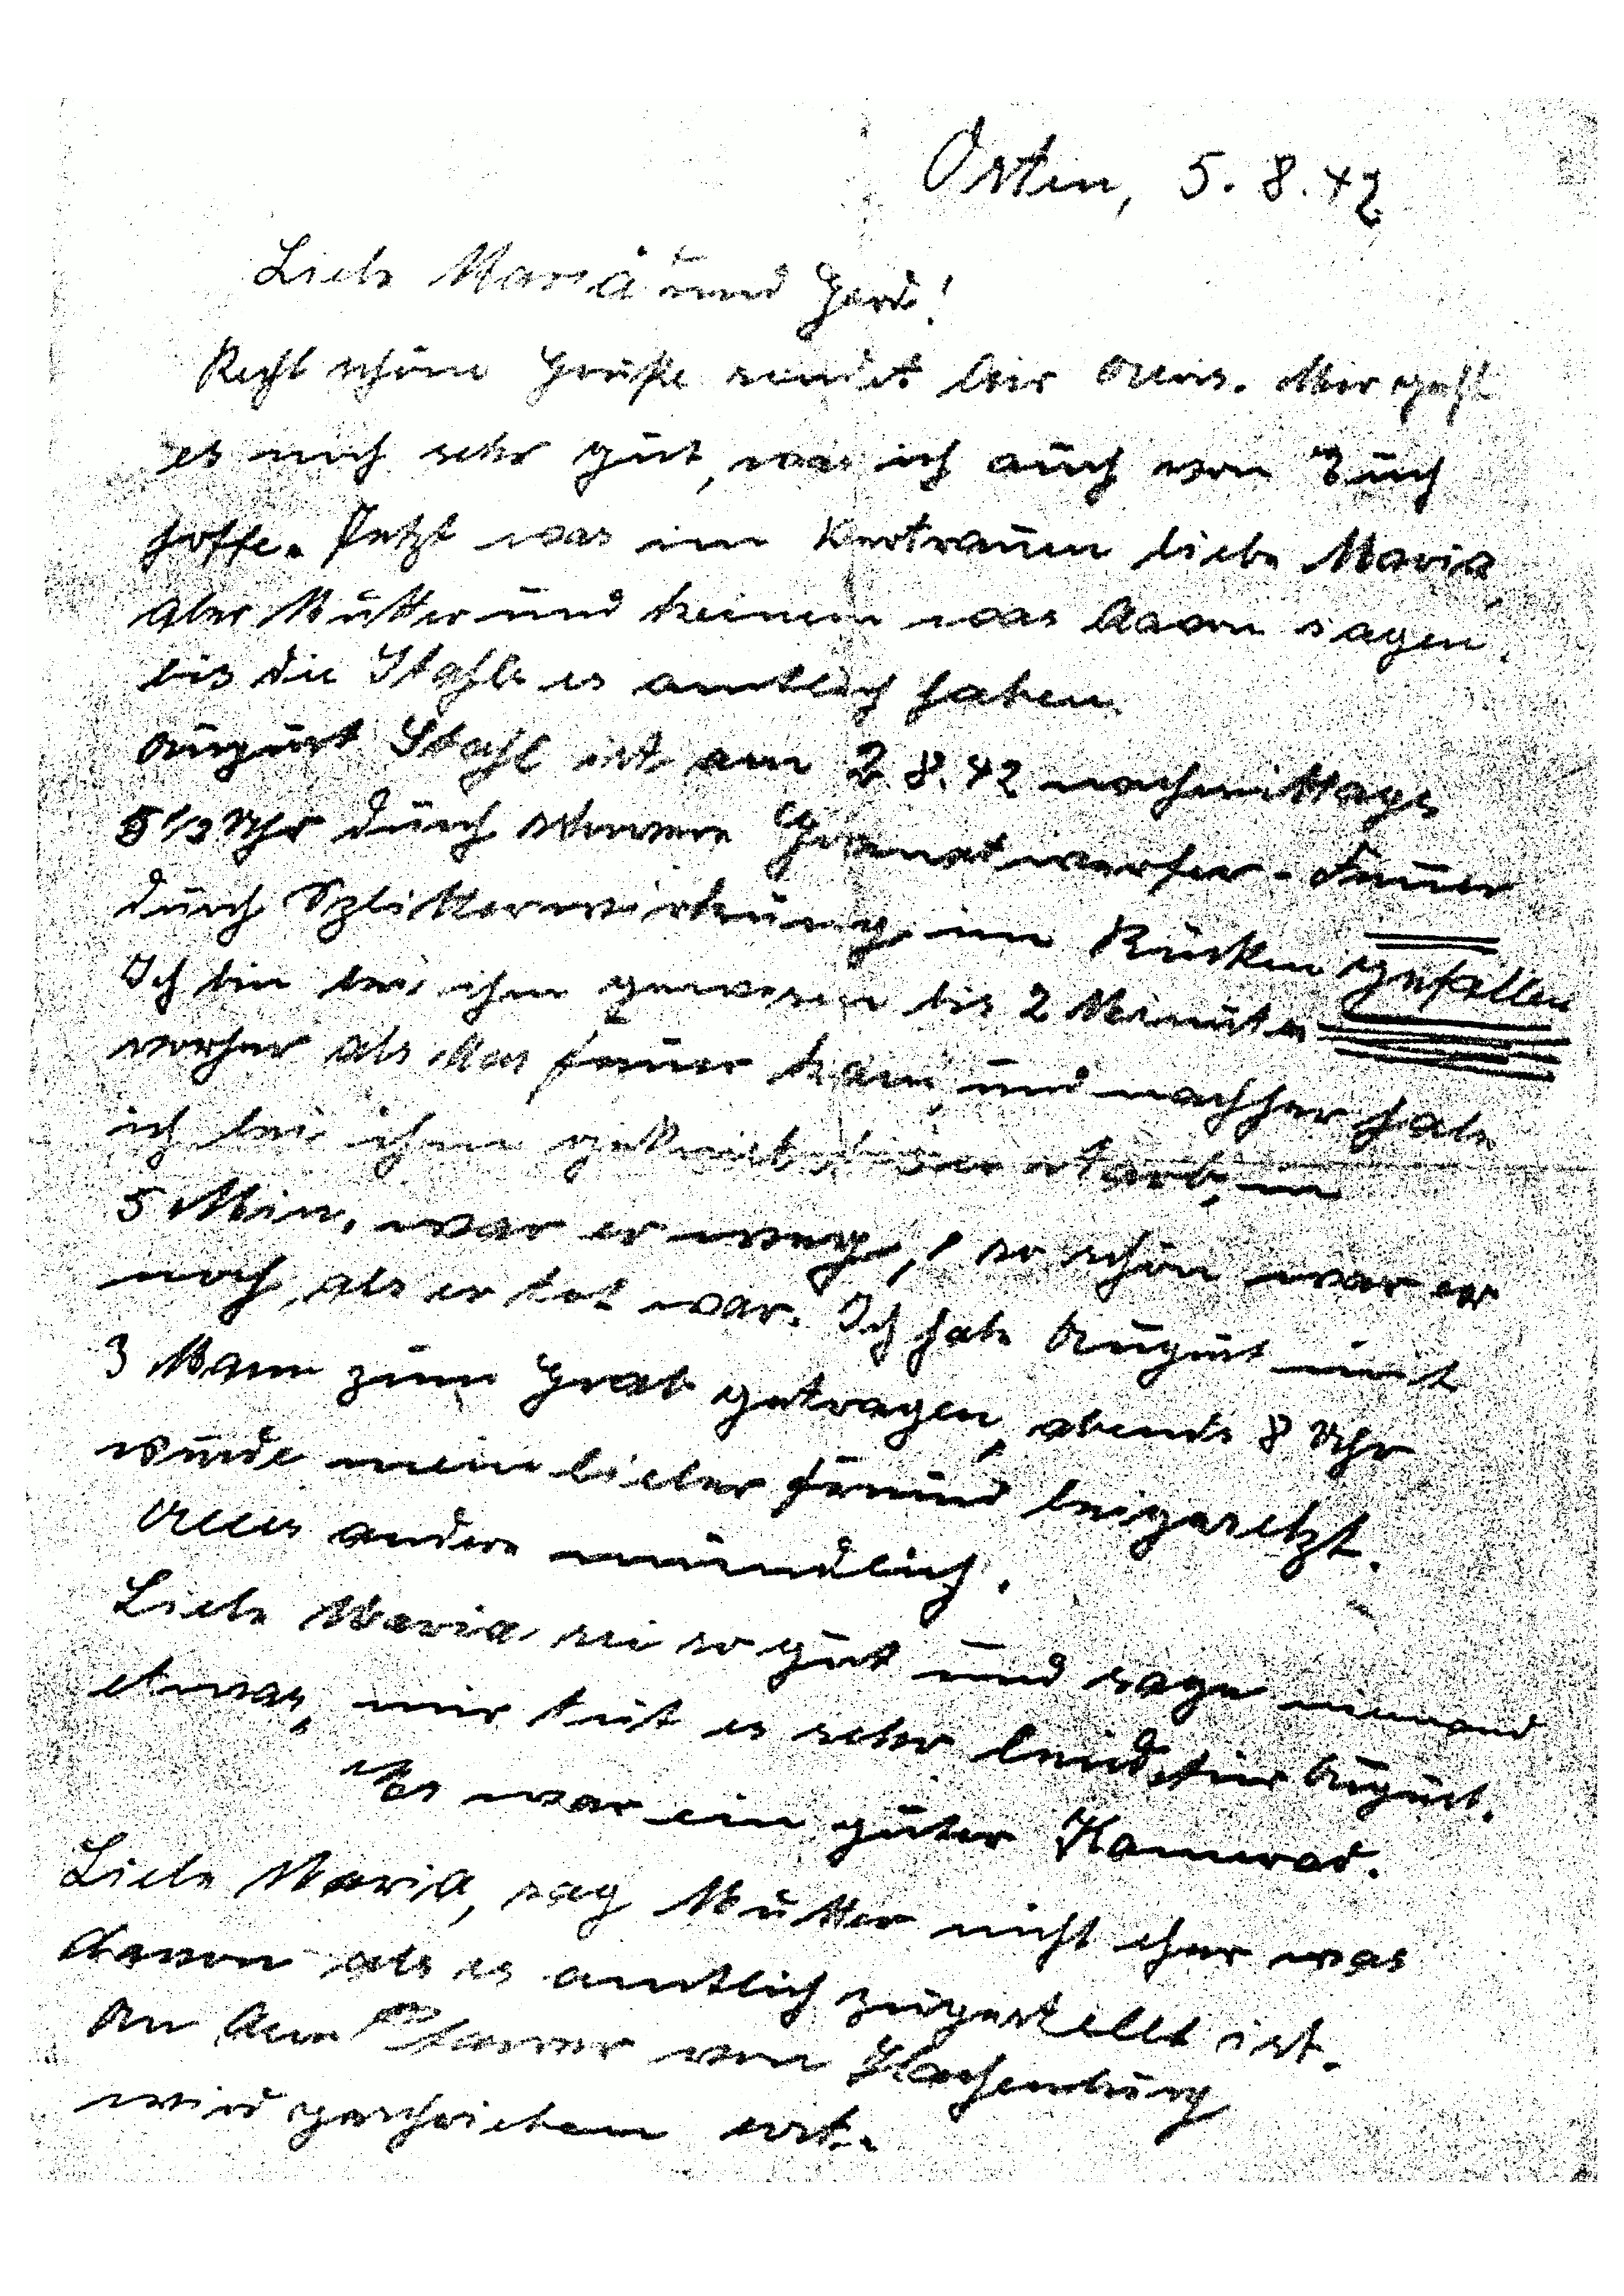 Osten, 5.8.42
Liebe Maria und Gerd!
Recht schöne Grüße sendet Dir Alois. Mir geht
es noch sehr gut, was ich auch von Euch
hoffe. Jetzt was im Vertrauen liebe Maria,
aber Mutter und keinem was davon sagen,
bis die Stahls es amtlich haben.
August Stahl ist am 2.8.42 nachmittags
5 1/2 Uhr durch schwere Granatwerfer-Feuer
durch Splitterwirkung im Rücken gefallen
Ich bin bei ihm gewesen bis 2 Minuten
vorher als das Feuer kam, und nachher habe
ich bei ihm gekniet bis er starb, in
5 Min. war er weg, so schön war er
noch, als er tot war. Ich habe August mit
3 Mann zum Grab getragen, abends 8 Uhr
wurde mein lieber Freund beigesetzt.
Alles andere mündlich.
Liebe Maria sei so gut und sage niemand
etwas, mir tut es sehr leid für August.
Es war ein guter Kamerad.
Liebe Maria, sag Mutter nicht eher was
davon als es amtlich zugestellt ist.
An den Pfarrer von Hachenburg
wird geschrieben erst.